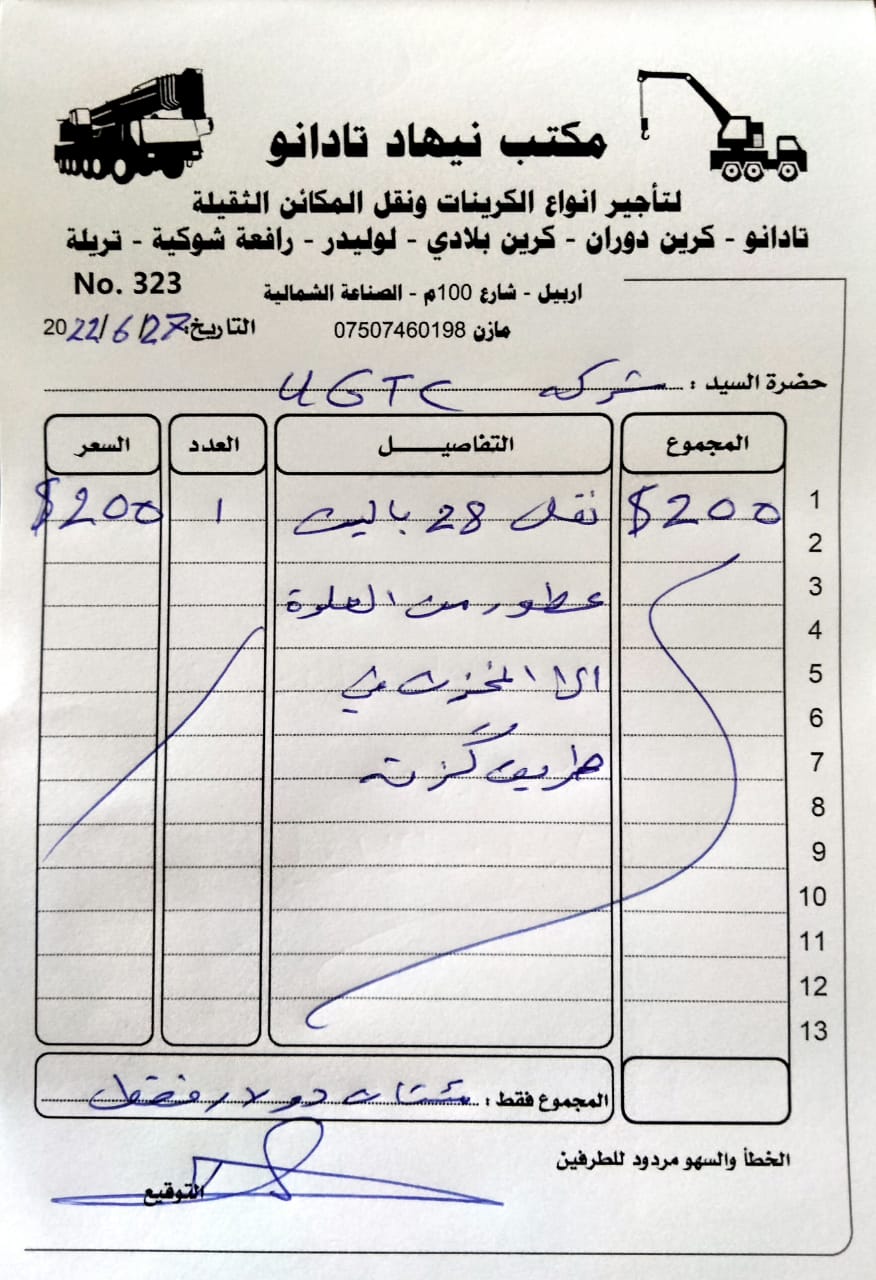 مكتب نيهاد تادانو
لتأجير انواع الكرينات ونقل المكائن الثقيلة
تادانو - كرين دوران - كرين بلادي - لوليدر - رافعة شوكية - تريلة
No. 323
اربيل - شارع 100م - الصناعة الشمالية
التاريخ: 2022/6/27
مازن 07507460198
حضرة السيد : شركة UGTC
المجموع التفاصيـــل العدد السعر
1 $200 نقل 28 باليت 1 $200
2
3 عطور من العلوة
4
5 الا المخزن في
6
7 طريق گزنه
8
9
10
11
12
13
المجموع فقط : مئتان دولار فقط
الخطأ والسهو مردود للطرفين
التوقيع